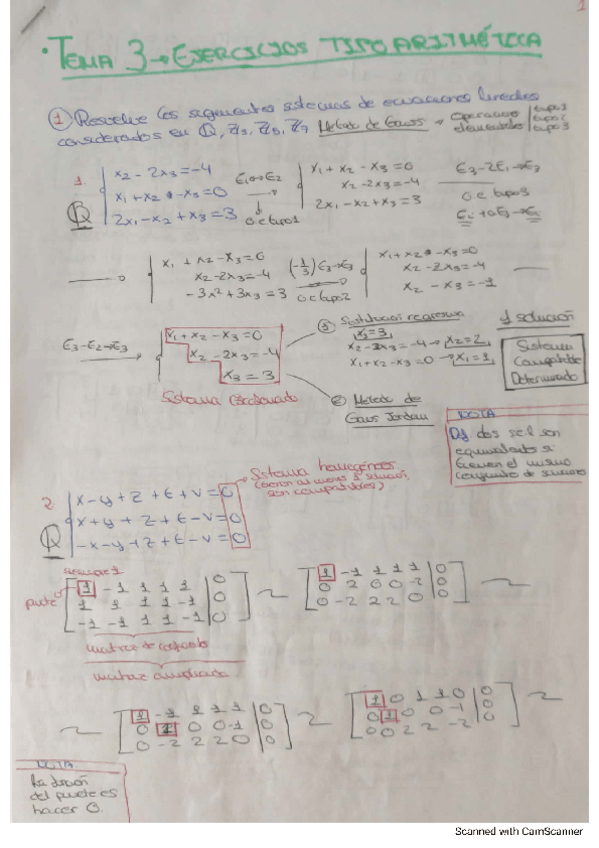 1
· TEMA 3 → EJERCICIOS TIPO ARITMÉTICA
① Resuelve los siguientes sistemas de ecuaciones lineales
considerados en Q, Z₃, Z₅, Z₇ Método de Gauss → Operaciones elementales | tipo 1 tipo 2 tipo 3
1. Q
x₂ - 2x₃ = -4
x₁ + x₂ - x₃ = 0
2x₁ - x₂ + x₃ = 3
E₁↔E₂
o.e tipo 1
x₁ + x₂ - x₃ = 0
x₂ - 2x₃ = -4
2x₁ - x₂ + x₃ = 3
E₃-2E₁→E₃
o.e tipo 3
x₁ + x₂ - x₃ = 0
x₂ - 2x₃ = -4
-3x₂ + 3x₃ = 3
(-1/3)E₃→E₃
o.e tipo 2
x₁ + x₂ - x₃ = 0
x₂ - 2x₃ = -4
x₂ - x₃ = -1
E₃-E₂→E₃
x₁ + x₂ - x₃ = 0
x₂ - 2x₃ = -4
x₃ = 3
Sistema Escalonado
① Sustitución regresiva
x₃ = 3
x₂ - 2x₃ = -4 → x₂ = 2
x₁ + x₂ - x₃ = 0 → x₁ = 1
② Método de
Gauss Jordan
1 solución
Sistema
Compatible
Determinado
NOTA
dos s.e.l son
equivalentes si
tienen el mismo
conjunto de
2. Q
x - y + z + t + v = 0
x + y + z + t - v = 0
-x - y + z + t - v = 0
Sistema homogéneo
(tienen al menos 1 solución,
son compatibles)
pivote
1 -1 1 1 1 | 0
1 1 1 1 -1 | 0
-1 -1 1 1 -1 | 0
matriz de
matriz ampliada
~
1 -1 1 1 1 | 0
0 2 0 0 -2 | 0
0 -2 2 2 0 | 0
~
~
1 -1 1 1 1 | 0
0 1 0 0 -1 | 0
0 -2 2 2 0 | 0
~
1 0 1 1 0 | 0
0 1 0 0 -1 | 0
0 0 2 2 -2 | 0
~
NOTA
la
del pivote es
hacer 0.
Scanned with CamScanner